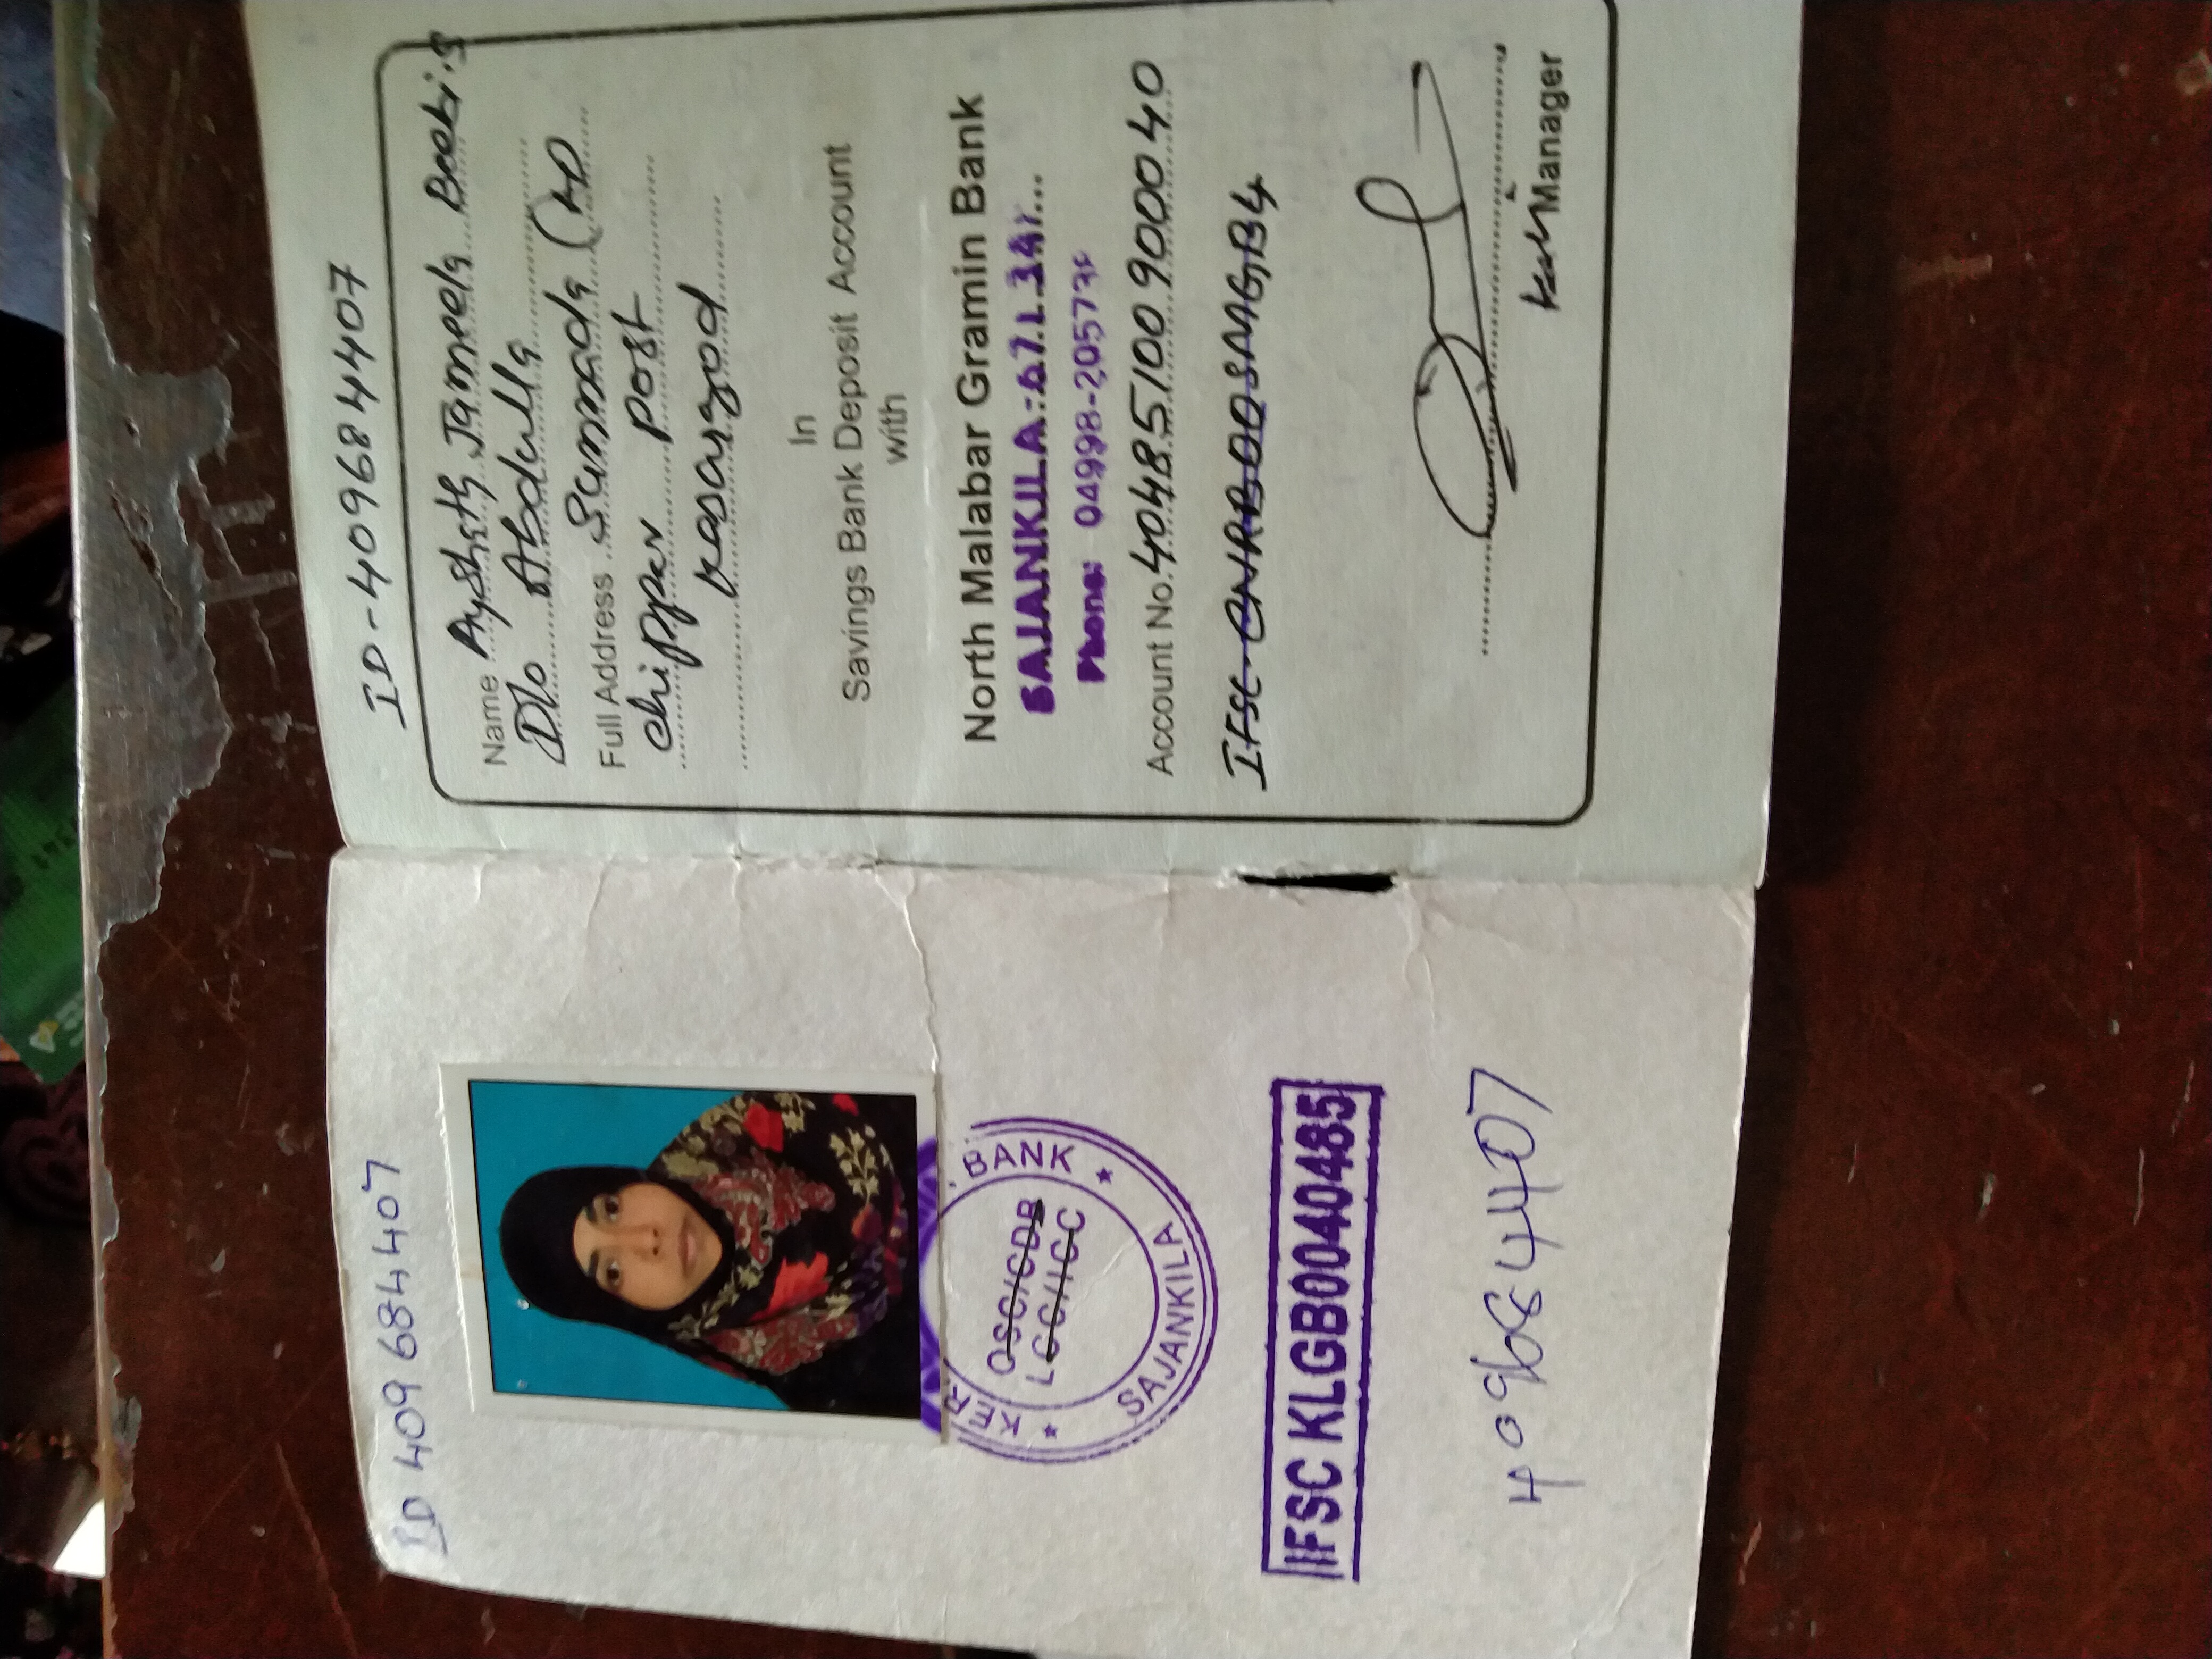 ID 409684407
KER
.BANK
OSC/CDB
LCC/ICC
SAJANKILA
IFSC KLGB0040485
409684407
ID-409684407
Name Ayshath Jameela Beebi.S
D/o Abdulla
Full Address (H)
chippar post
Kasaragod
In
Savings Bank Deposit Account
with
North Malabar Gramin Bank
SAJANKILA-671 
Phone: 04998-20573
Account No. 40485100900040
IFSC-CNRB00SMGB4
Manager